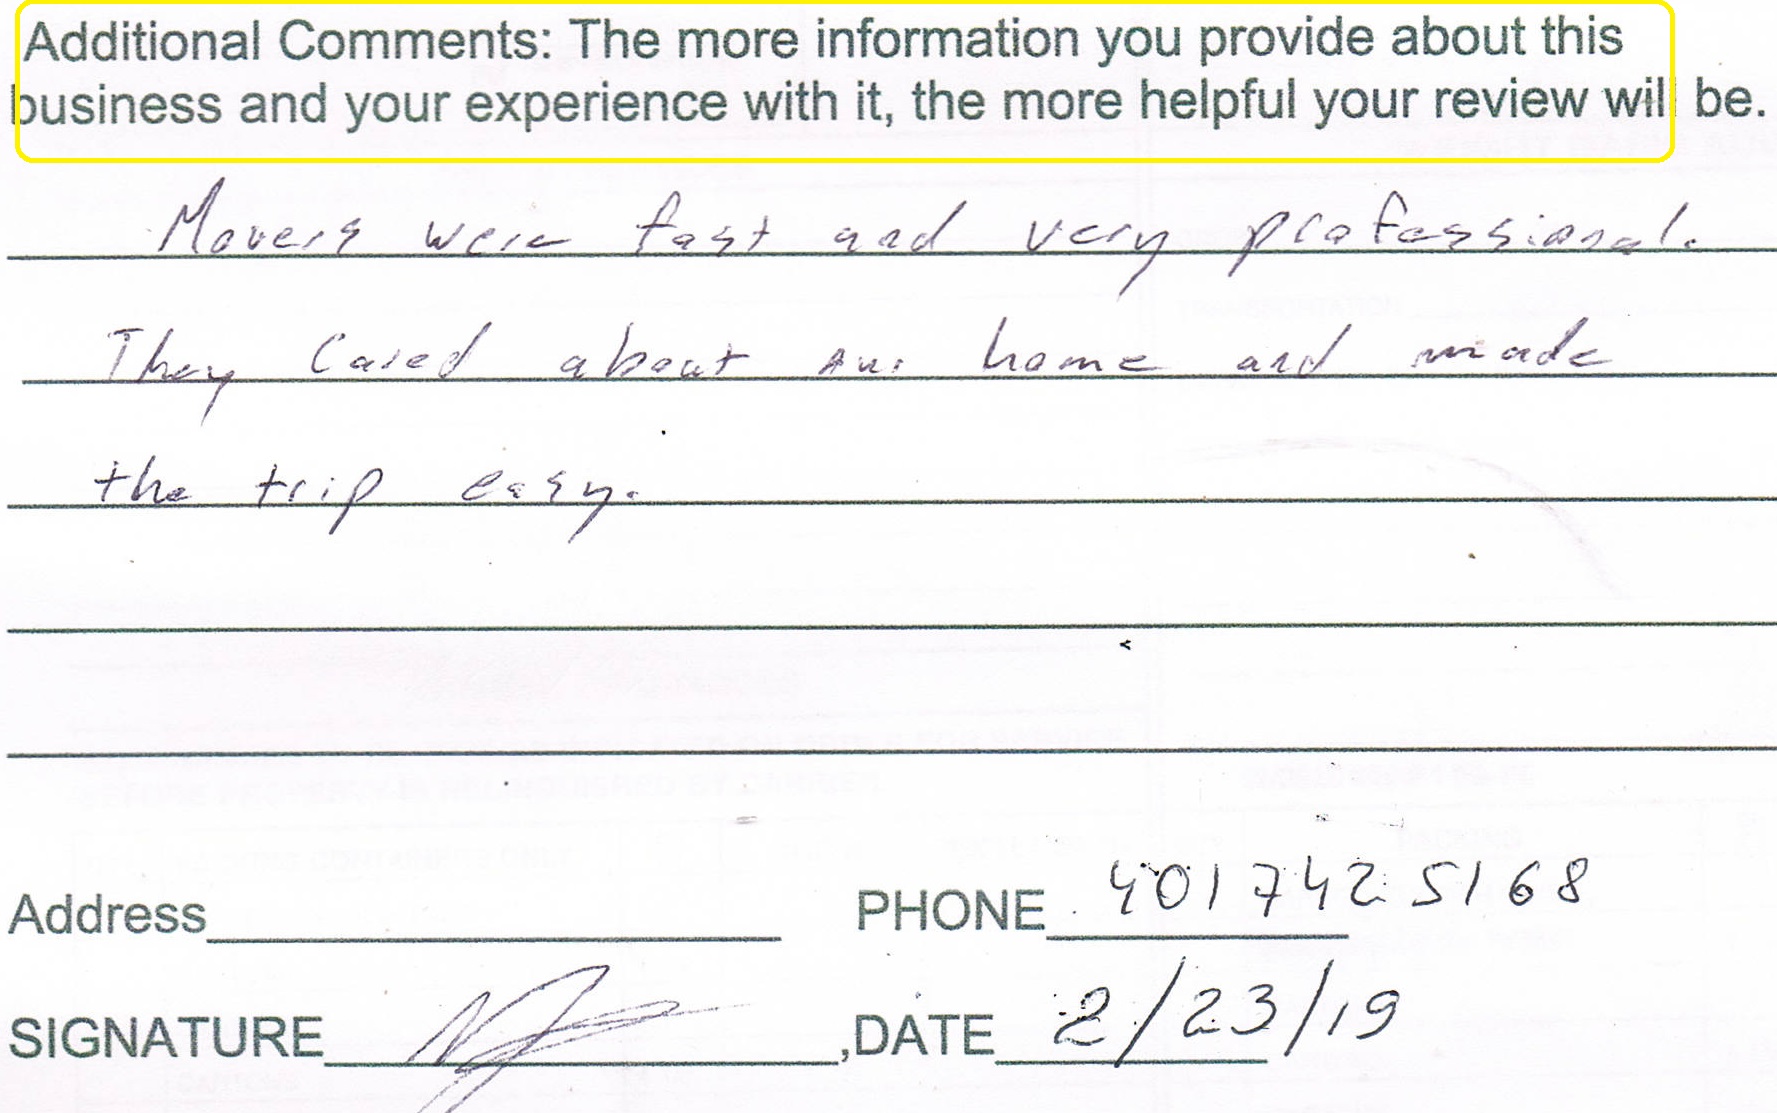 Additional Comments: The more information you provide about this
business and your experience with it, the more helpful your review will be.
Movers were fast and very professional.
They Cared about our home and made
the trip easy.
Address PHONE 4017425168
SIGNATURE ,DATE 2/23/19